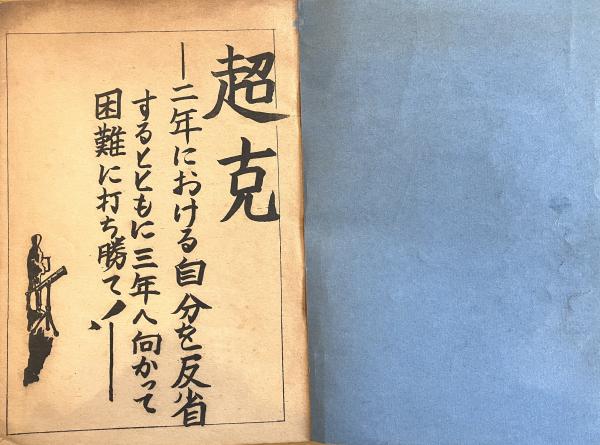 超克
―二年における自分を反省
するとともに三年へ向かって
困難に打ち勝て!―